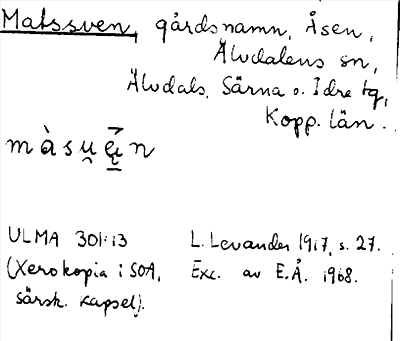 Matssven, gårdsnamn, Åsen,
Älvdalens sn,
Älvdals, Särna o. Idre tg,
Kopp. län.
màsu̯ę́̄n
ULMA 301:13
(Xerokopia i SOA,
särsk. kapsel).
L. Levander 1917, s. 27.
Exc. av E.Å. 1968.